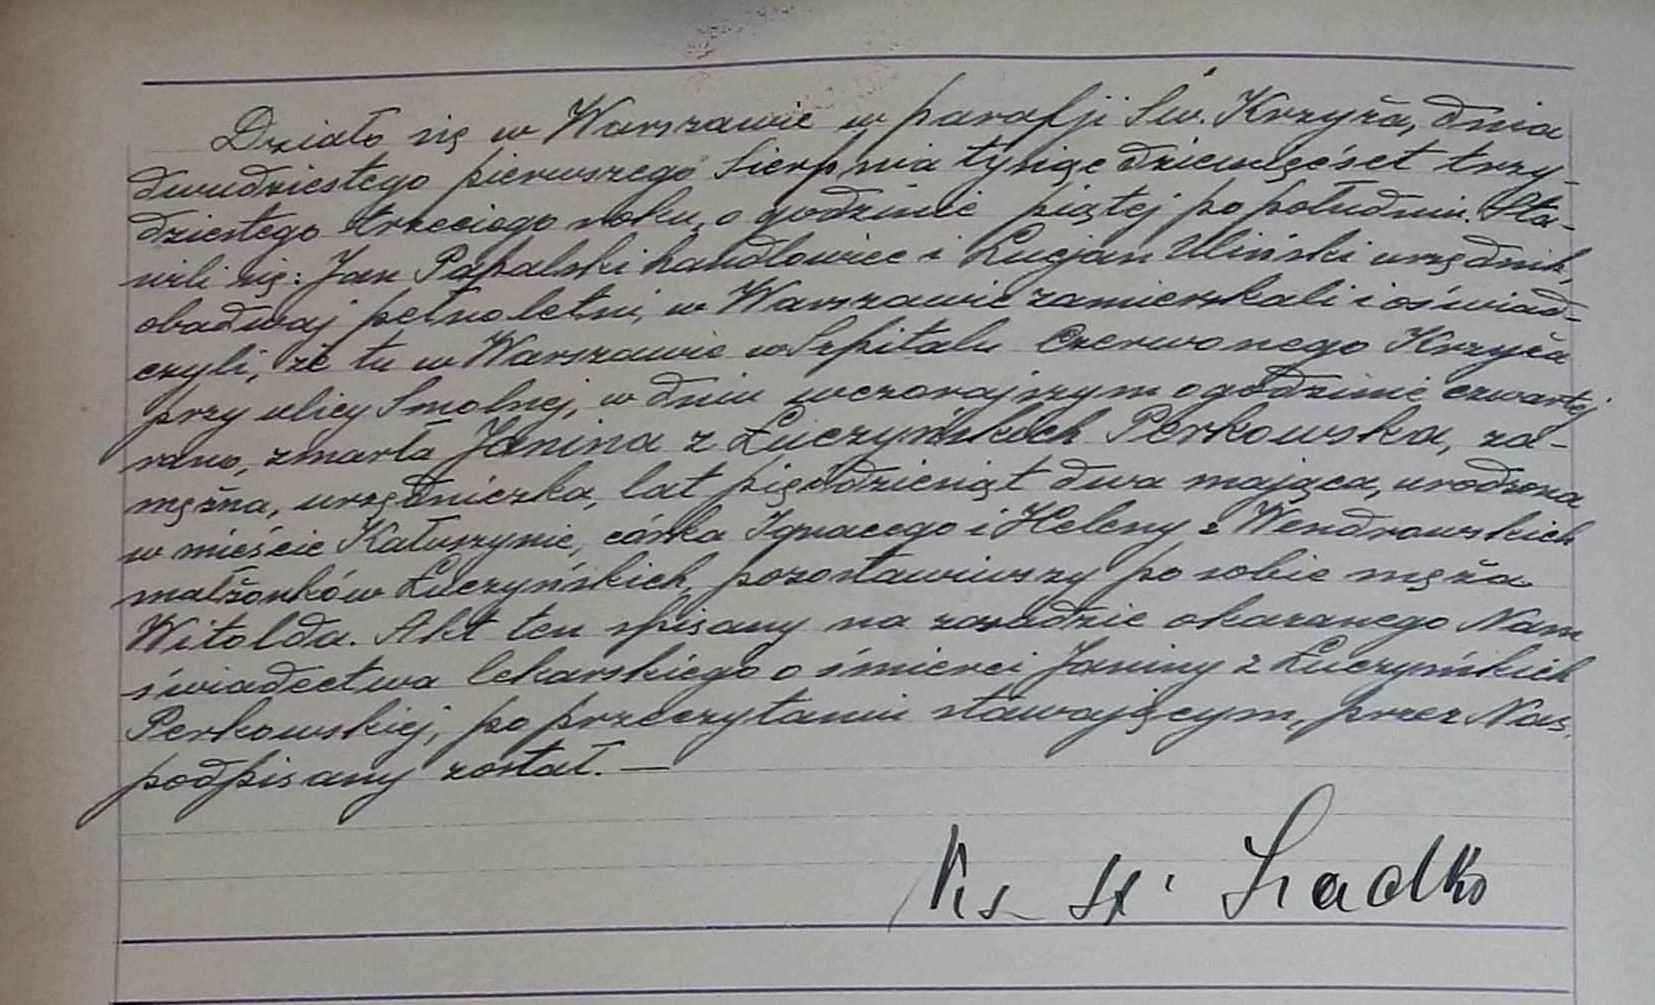 Działo się w Warszawie w parafji Św. Krzyża, dnia
dwudziestego pierwszego Sierpnia tysiąc dziewięćset trzy-
dziestego trzeciego roku, o godzinie piątej po południu. Sta-
wili się: Jan Papalski handlowiec i Lucjan Uliński urzędnik,
obadwaj pełnoletni, w Warszawie zamieszkali i oświad-
czyli, że tu w Warszawie w Szpitalu Czerwonego Krzyża
przy ulicy Smolnej, w dniu wczorajszym o godzinie czwartej
rano, zmarła Janina z Łuczyńskich Perkowska, za-
mężna, urzędniczka, lat pięćdziesiąt dwa mająca, urodzona
w mieście Kałuszynie, córka Ignacego i Heleny z Wendrowskich
małżonków Łuczyńskich, pozostawiwszy po sobie męża
Witolda. Akt ten spisany na zasadzie okazanego Nam
świadectwa lekarskiego o śmierci Janiny z Łuczyńskich
Perkowskiej, po przeczytaniu stawającym, przez Nas,
podpisany został. —
Ks. St. Siadko